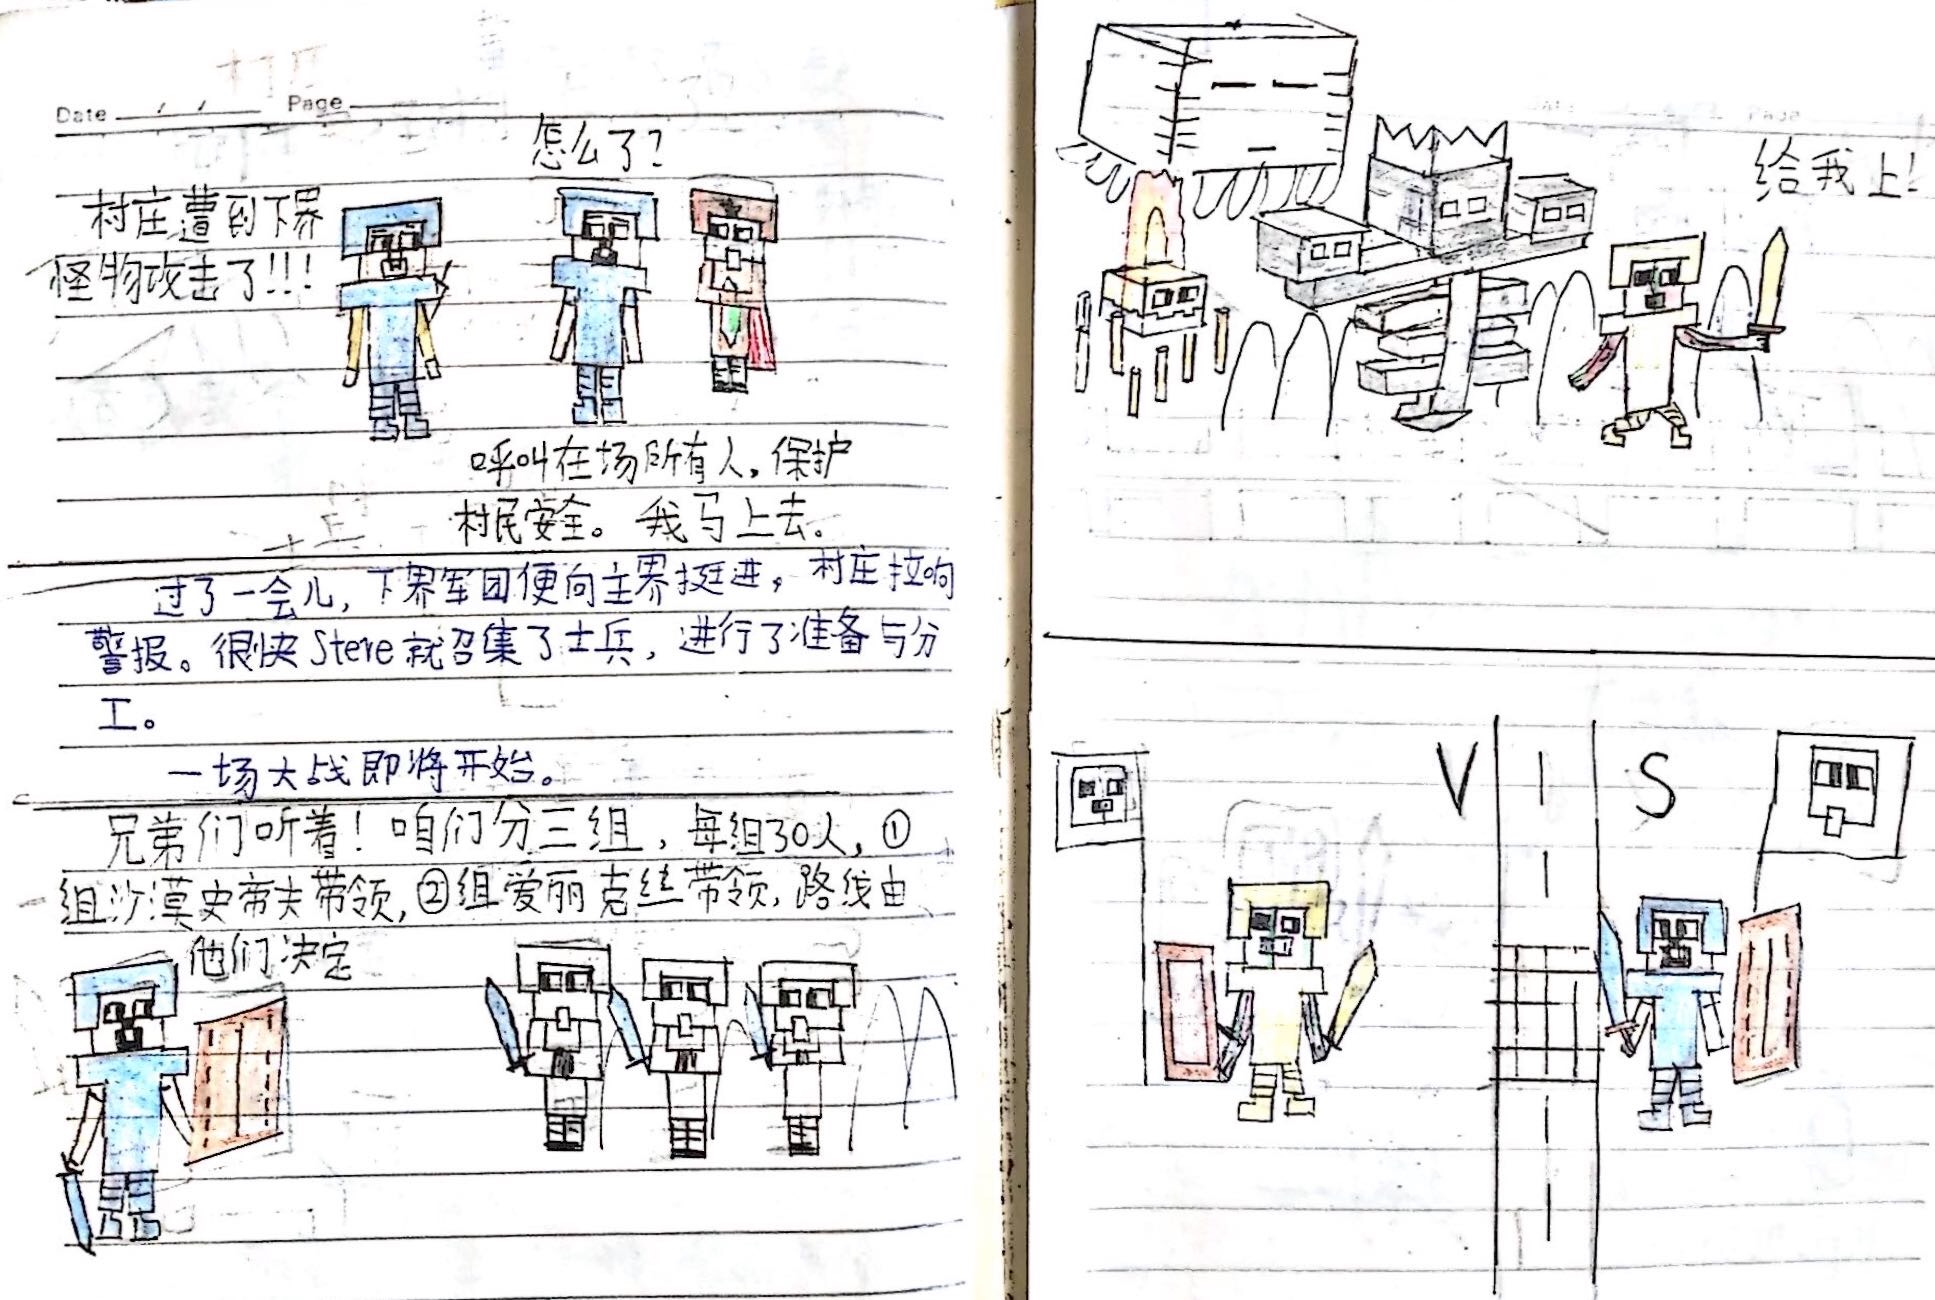 Date / / Page
怎么了?
村庄遭到下界
怪物攻击了!!!
呼叫在场所有人,保护
村民安全。我马上去。
过了一会儿,下界军团便向主界挺进,村庄拉响
警报。很快Steve就召集了士兵,进行了准备与分
工。
一场大战即将开始。
兄弟们听着!咱们分三组,每组30人,①
组沙漠史帝夫带领,②组爱丽克丝带领,路线由
他们决定
给我上!
V S